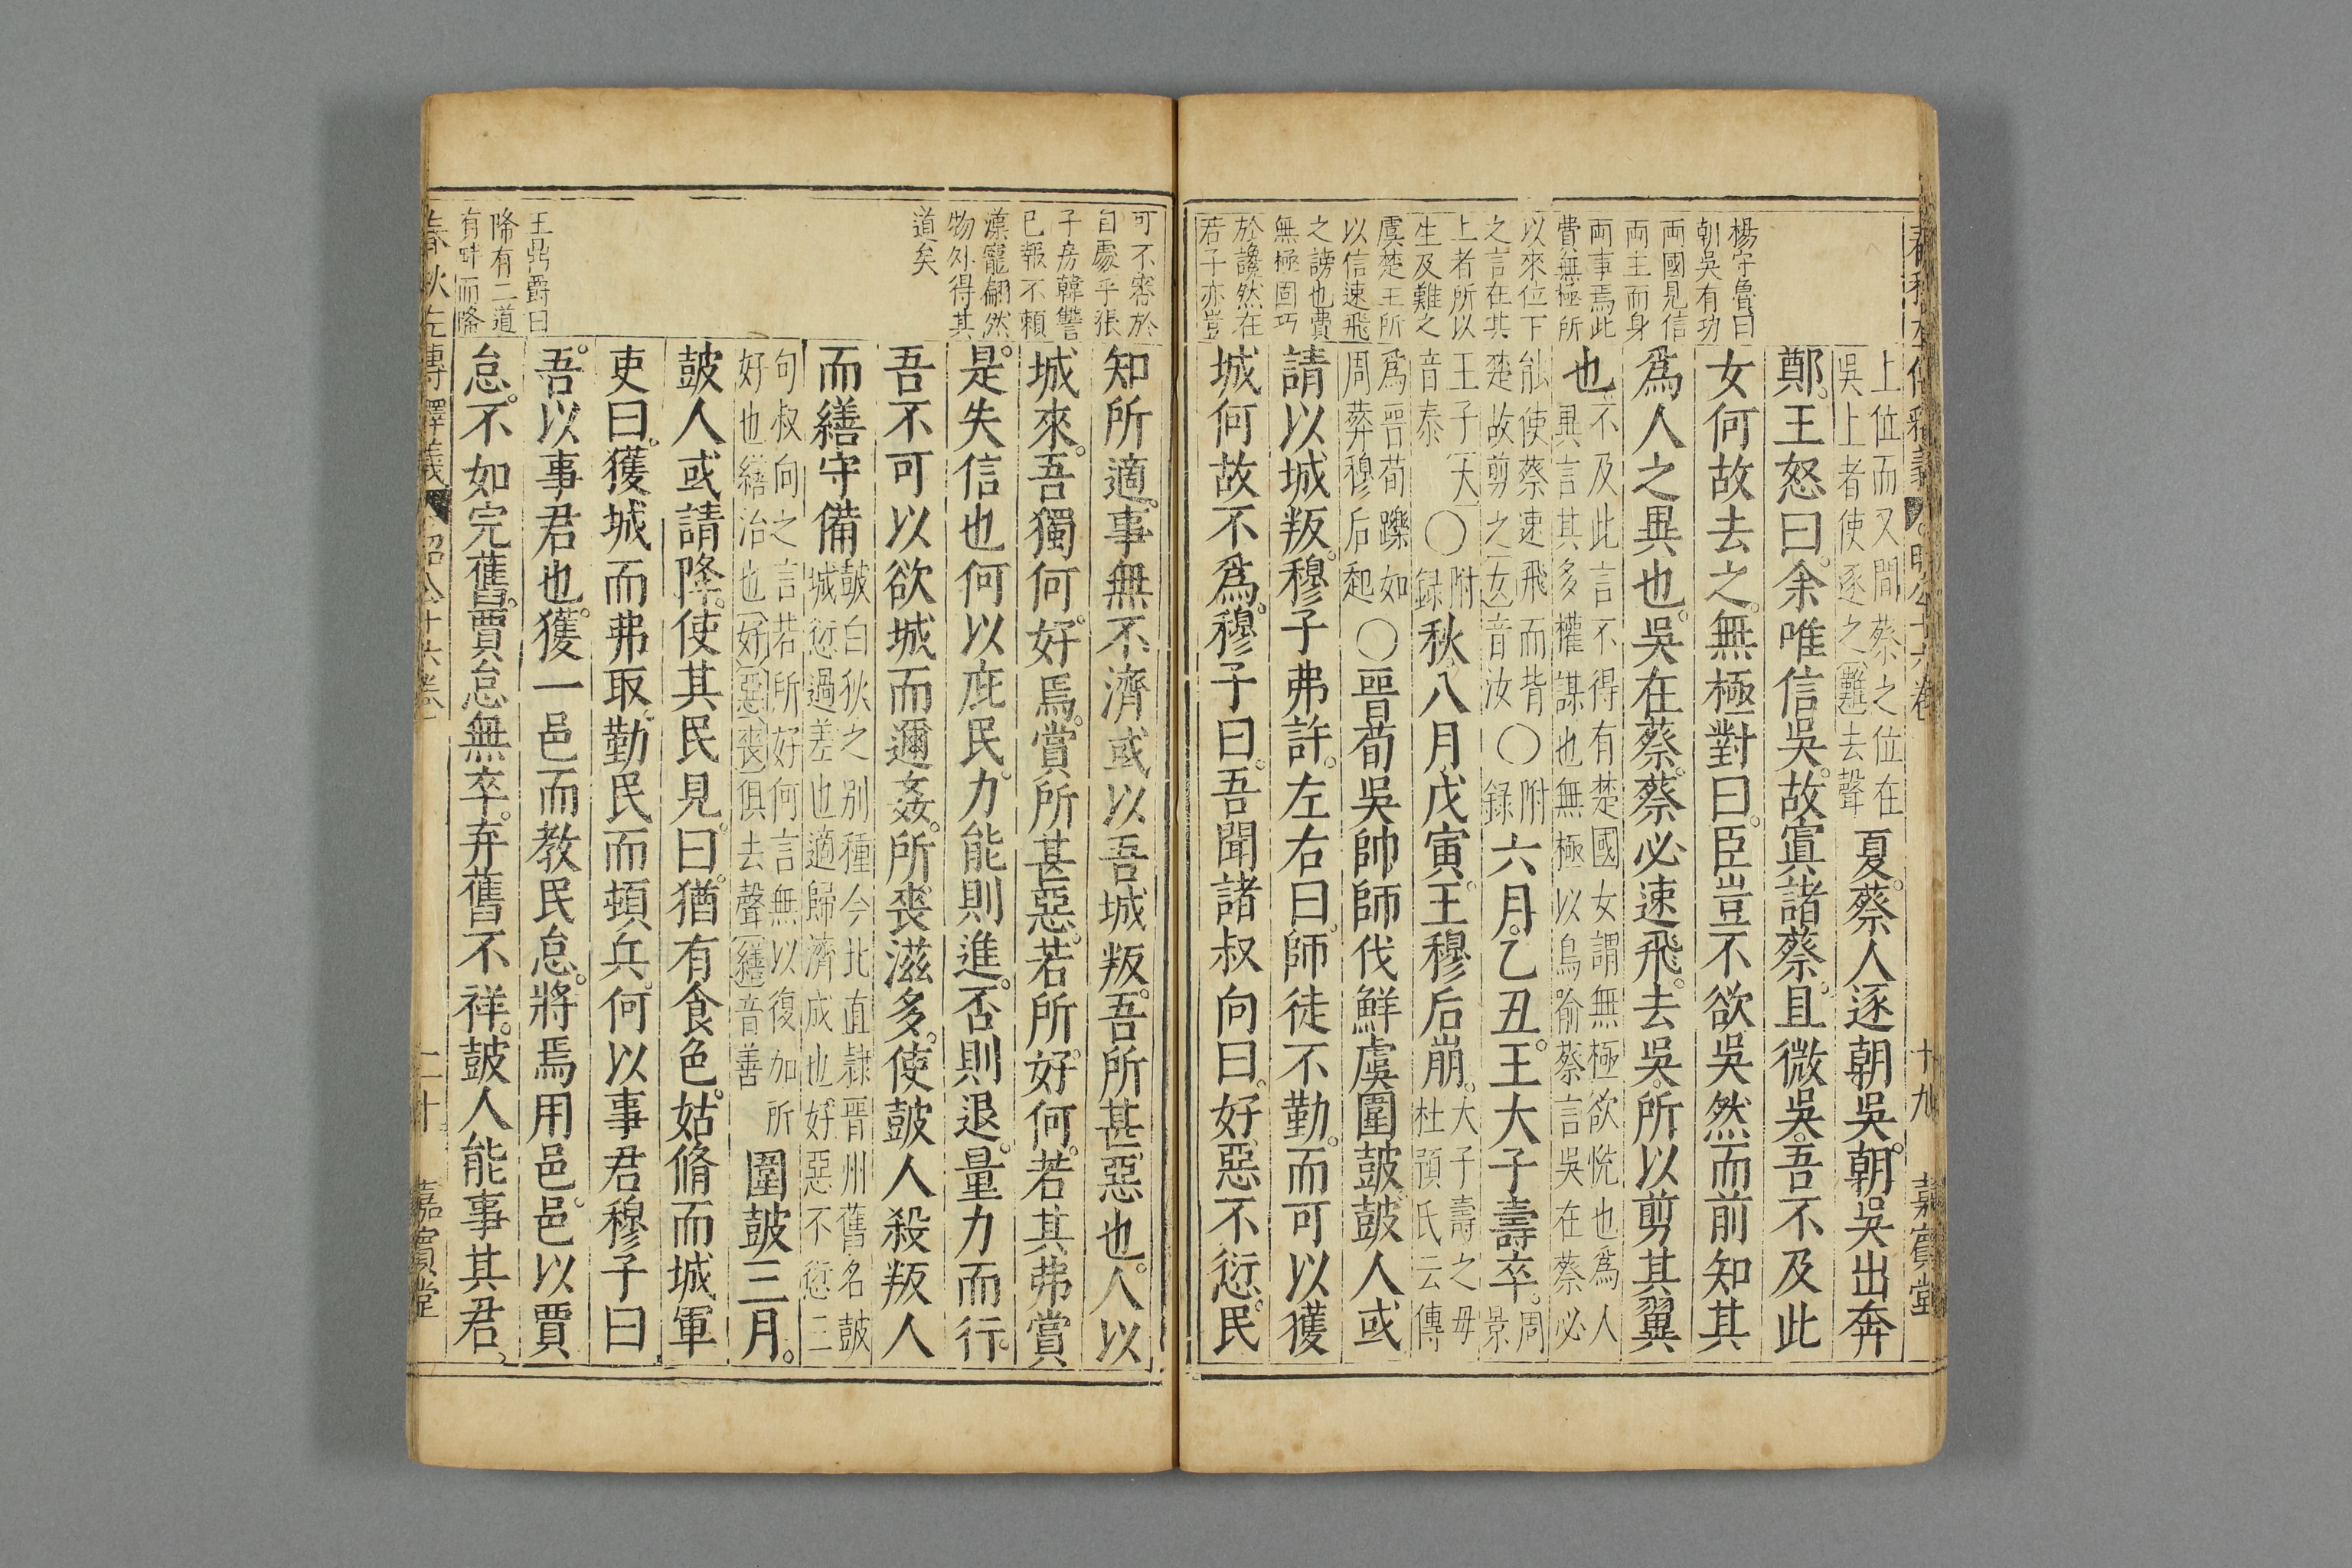 楊守魯曰
朝吳有功
兩國見信
兩主而身
兩事焉此
費無極所
以來位下
之言在其
上者所以
生及難之
虞楚王所
以信速飛
之謗也費
無極固巧
於讒然在
君子亦豈
上位而又間蔡之位在
吳上者使逐之難去聲
夏蔡人逐朝吳朝吳出奔
鄭王怒曰余唯信吳故寘諸蔡且微吳吾不及此
女何故去之無極對曰臣豈不欲吳然而前知其
爲人之異也吳在蔡蔡必速飛去吳所以剪其翼
也
不及此言不得有楚國女謂無極欲恍也爲人
異言其多權謀也無極以鳥喻蔡言吳在蔡必
能使蔡速飛而背
楚故剪之女音汝
○附錄
六月乙丑王大子壽卒
周景
王子大
音泰
○附錄
秋八月戊寅王穆后崩
大子壽之母
杜預氏云傳
爲晉荀躒如
周葬穆后起
○晉荀吳帥師伐鮮虞圍鼓鼓人或
請以城叛穆子弗許左右曰師徒不勤而可以獲
城何故不爲穆子曰吾聞諸叔向曰好惡不愆民
十九
嘉賓堂
可不審於
自處乎張
子房韓讐
已報不賴
漢寵翩然
物外得其
道矣
王鼎爵曰
降有二道
有畔而降
知所適事無不濟或以吾城叛吾所甚惡也人以
城來吾獨何好焉賞所甚惡若所好何若其弗賞
是失信也何以庇民力能則進否則退量力而行
吾不可以欲城而邇姦所喪滋多使鼓人殺叛人
而繕守備
鼓白狄之別種今北直隸晉州舊名鼓
城愆過差也適歸濟成也好惡不愆二
句叔向之言若所好何言無以復加所
好也繕治也好惡喪俱去聲繕音善
圍鼓三月
鼓人或請降使其民見曰猶有食色姑脩而城軍
吏曰獲城而弗取勤民而頓兵何以事君穆子曰
吾以事君也獲一邑而教民怠將焉用邑邑以賈
怠不如完舊賈怠無卒弃舊不祥鼓人能事其君
春秋左傳釋義
昭公十六卷
二十
嘉賓堂